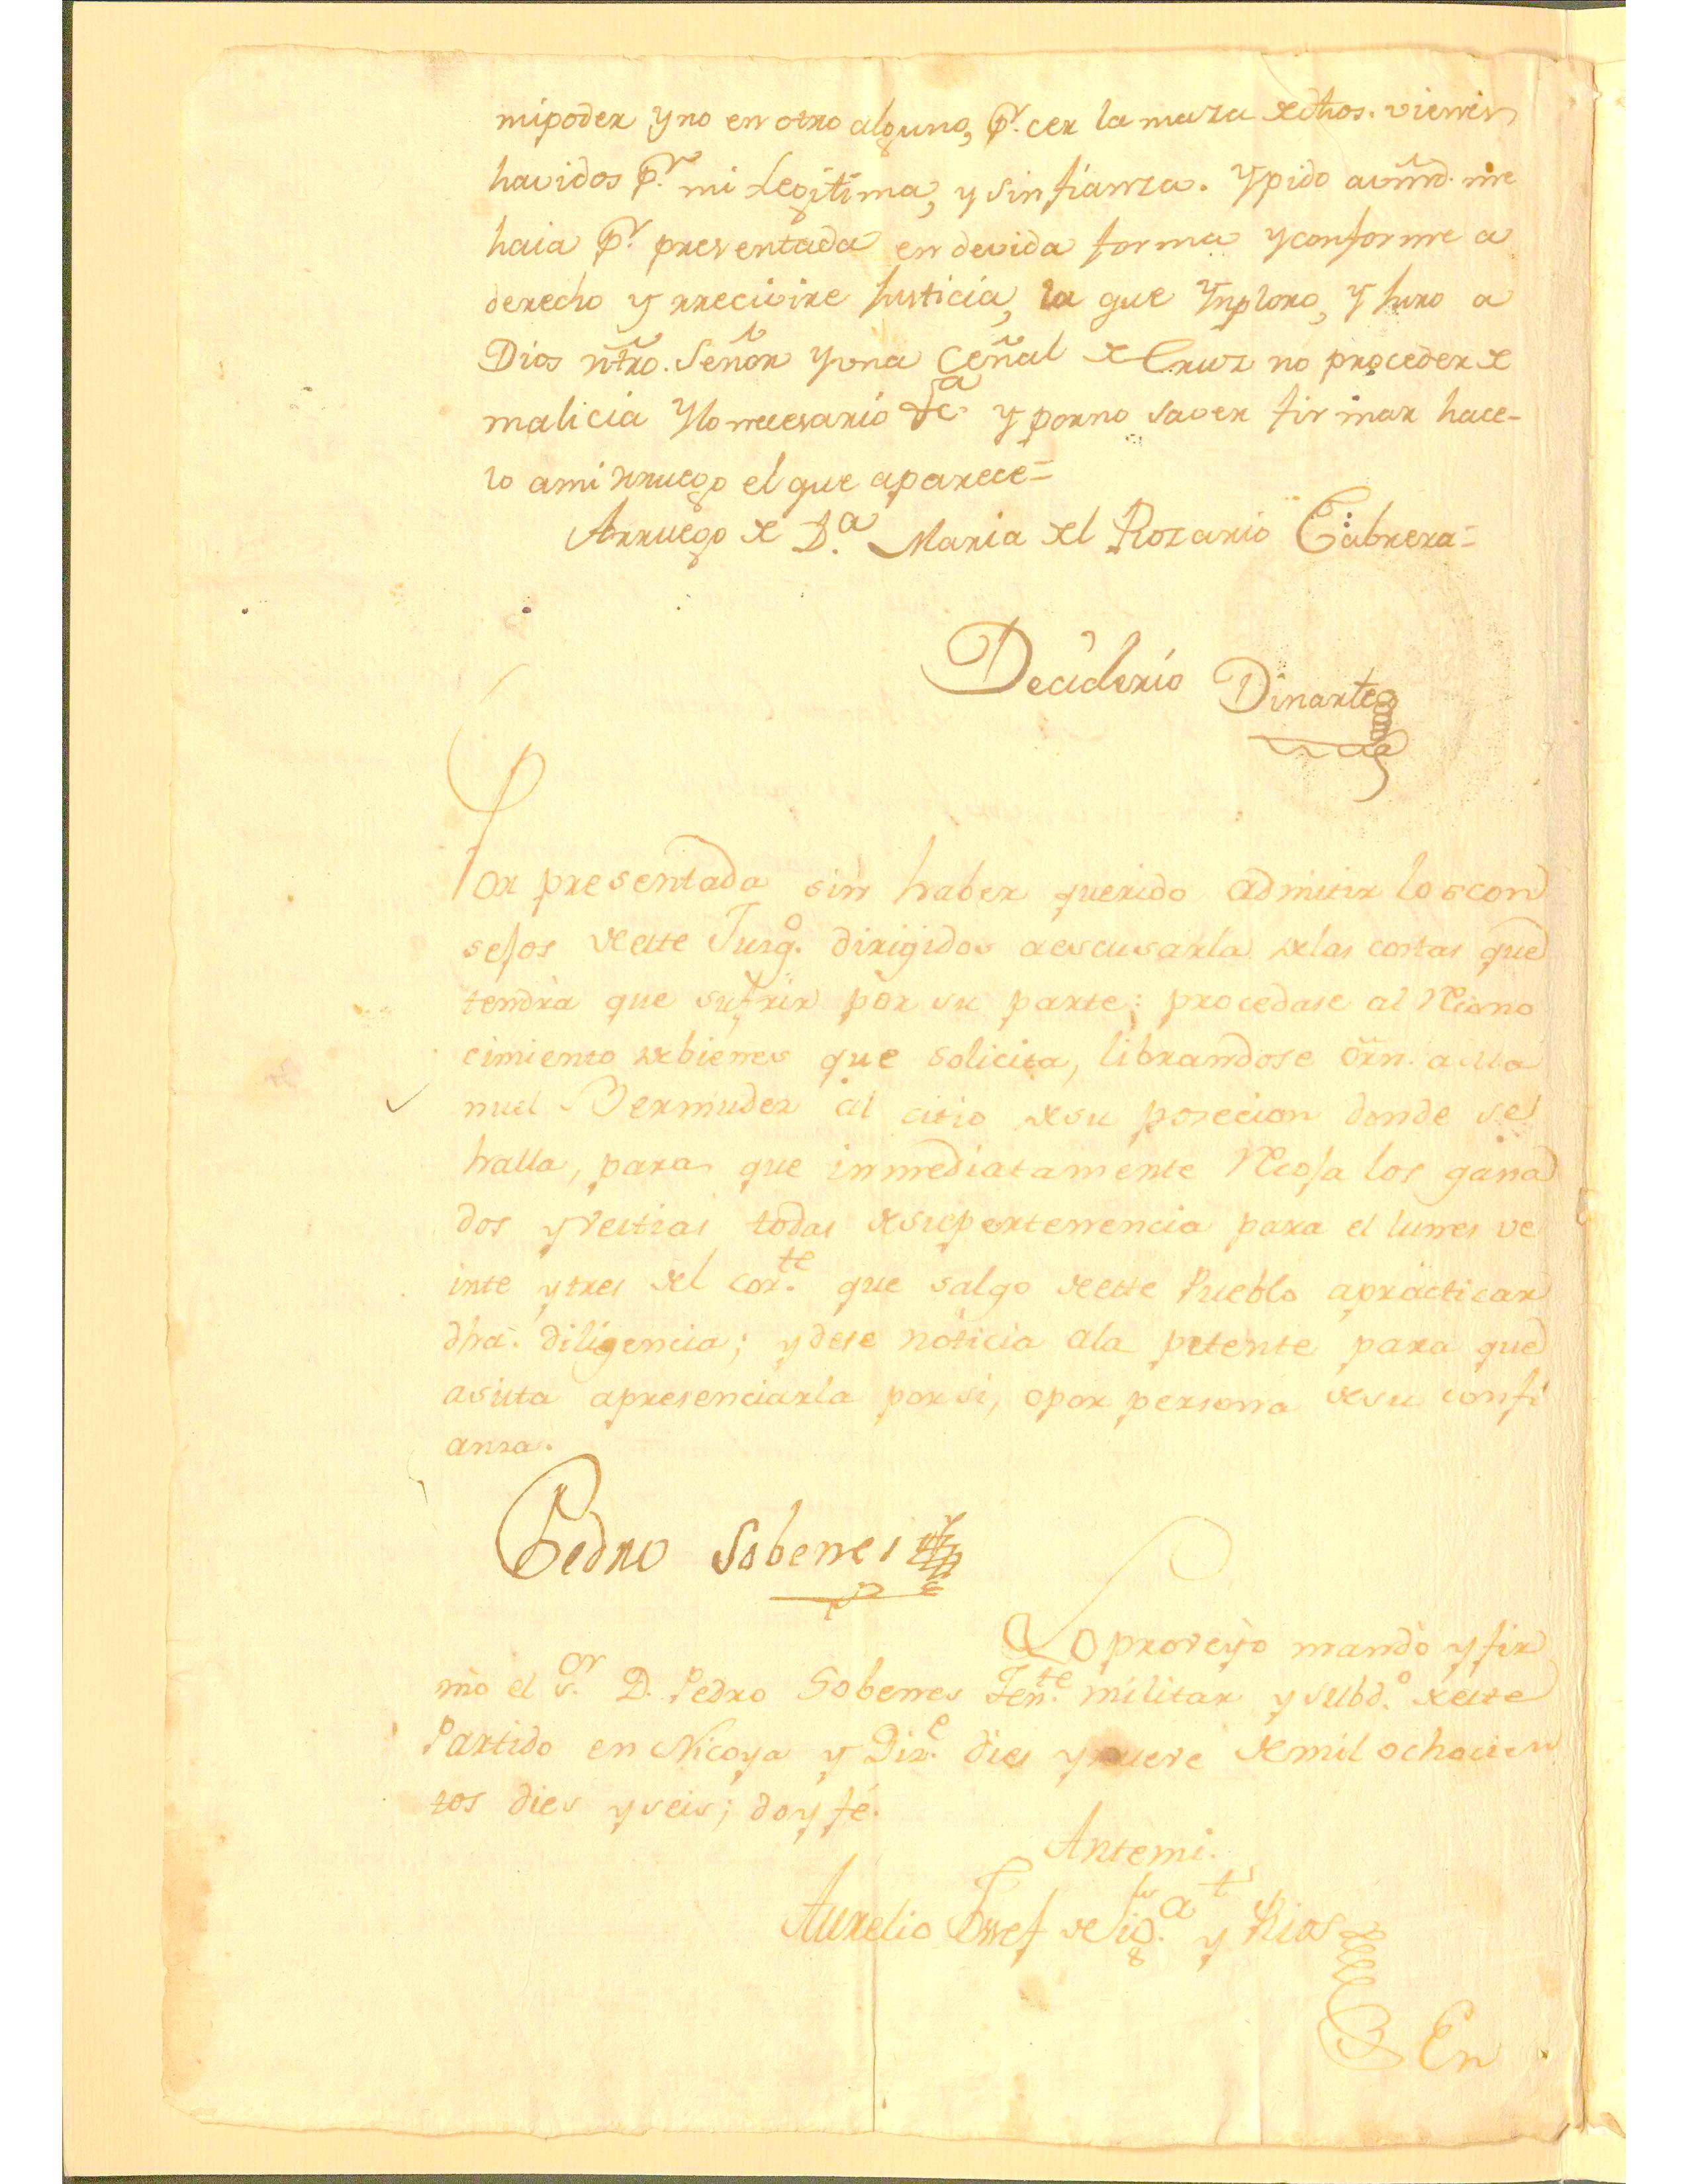 mi poder y no en otro alguno, pr. cer la maza de dhos. vienes
havidos pr. mi Legitima, y sin fianza. Y pido a vmd. me
haia pr. presentada en devida forma y conforme a
derecho y rrecivire Justicia, la que Ynploro, y Juro a
Dios ntro. Señor y una Ceñal de Cruz no proceder de
malicia y lo necesario &ca. y por no saver firmar hace-
lo a mi rruego el que aparece=
Arruego de Da. Maria del Rozario Cabrera=
Deciderio Dinarte
Por presentada sin haber querido admitir los con
sejos de este Juzgo. dirigidos a escusarla de las costas que
tendrà que sufrir por su parte: procedase al Recono
cimiento de bienes que solicita, librandose orn. a Ma
nuel Bermudez al citio de su posecion donde se
halla, para que inmediatamente Recoja los gana
dos y vestias todas de su pertenencia para el lunes ve
inte y tres del corte. que salgo de este Pueblo a practicar
dha. diligencia; y dese noticia a la petente para que
asista a presenciarla por si, o por persona de su confi
anza.
Pedro Sobenes
Lo proveyo mandò y fir
mò el Sor. D. Pedro Sobenes Tente. militar y subdo. de este
Partido en Nicoya y Dize. dies y nueve de mil ochocien
tos dies y seis; doy fé.
Antemi.
Aurelio Josef de y Rios
En